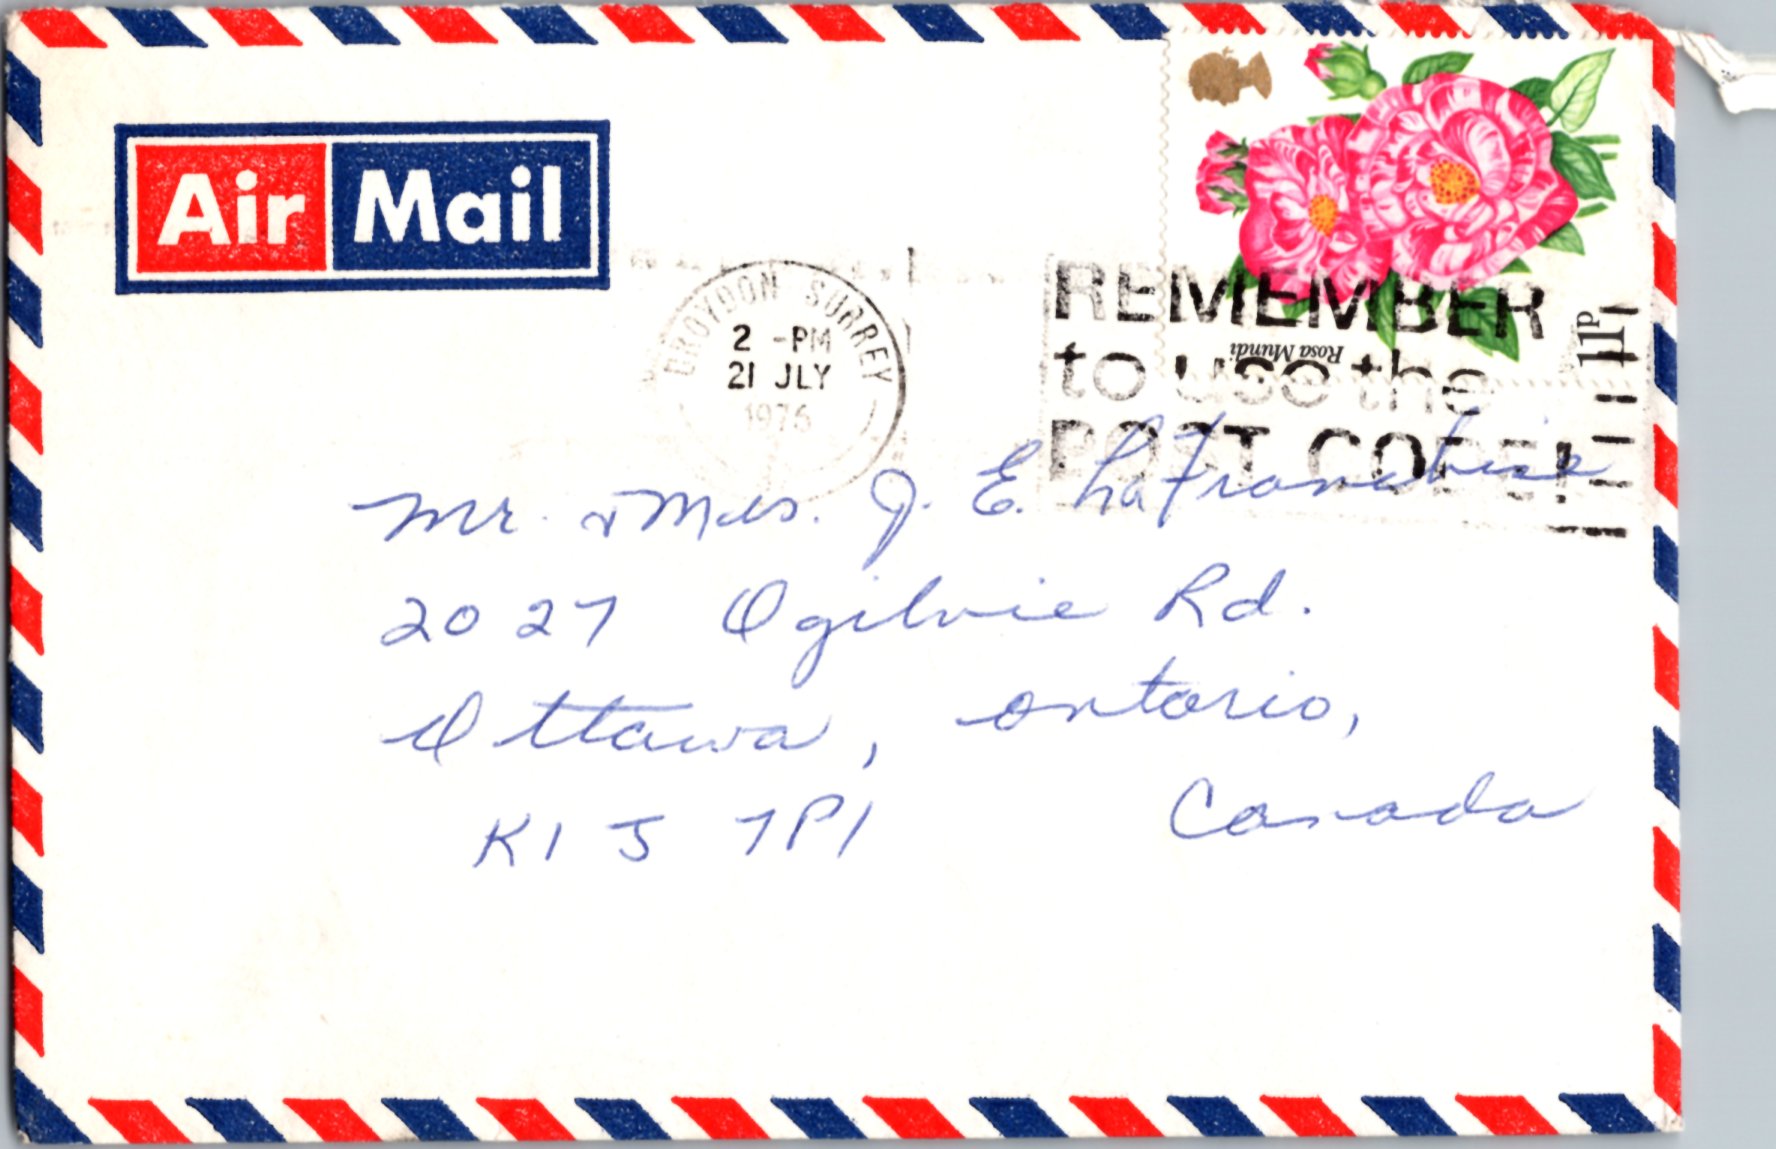 Air Mail
CROYDON SURREY
2 -PM
21 JLY
1976
REMEMBER
to use the
POST CODE!
Rosa Mundi
11P
Mr. & Mrs. J. E. LaFranchise
2027 Ogilvie Rd.
Ottawa, Ontario,
K1J 7P1 Canada